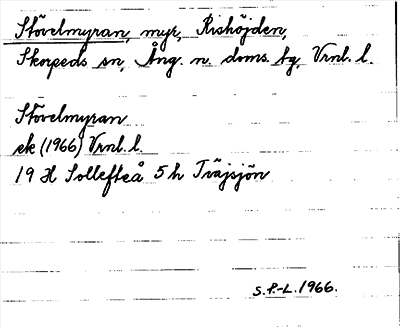 Stövelmyran, myr, Rishöjden,
Skorpeds sn, Ång. n. doms. tg, Vrnl. l.
Stövelmyran
ek (1966) Vrnl. l.
19 H Sollefteå 5 h Träjsjön
S. P.-L. 1966.